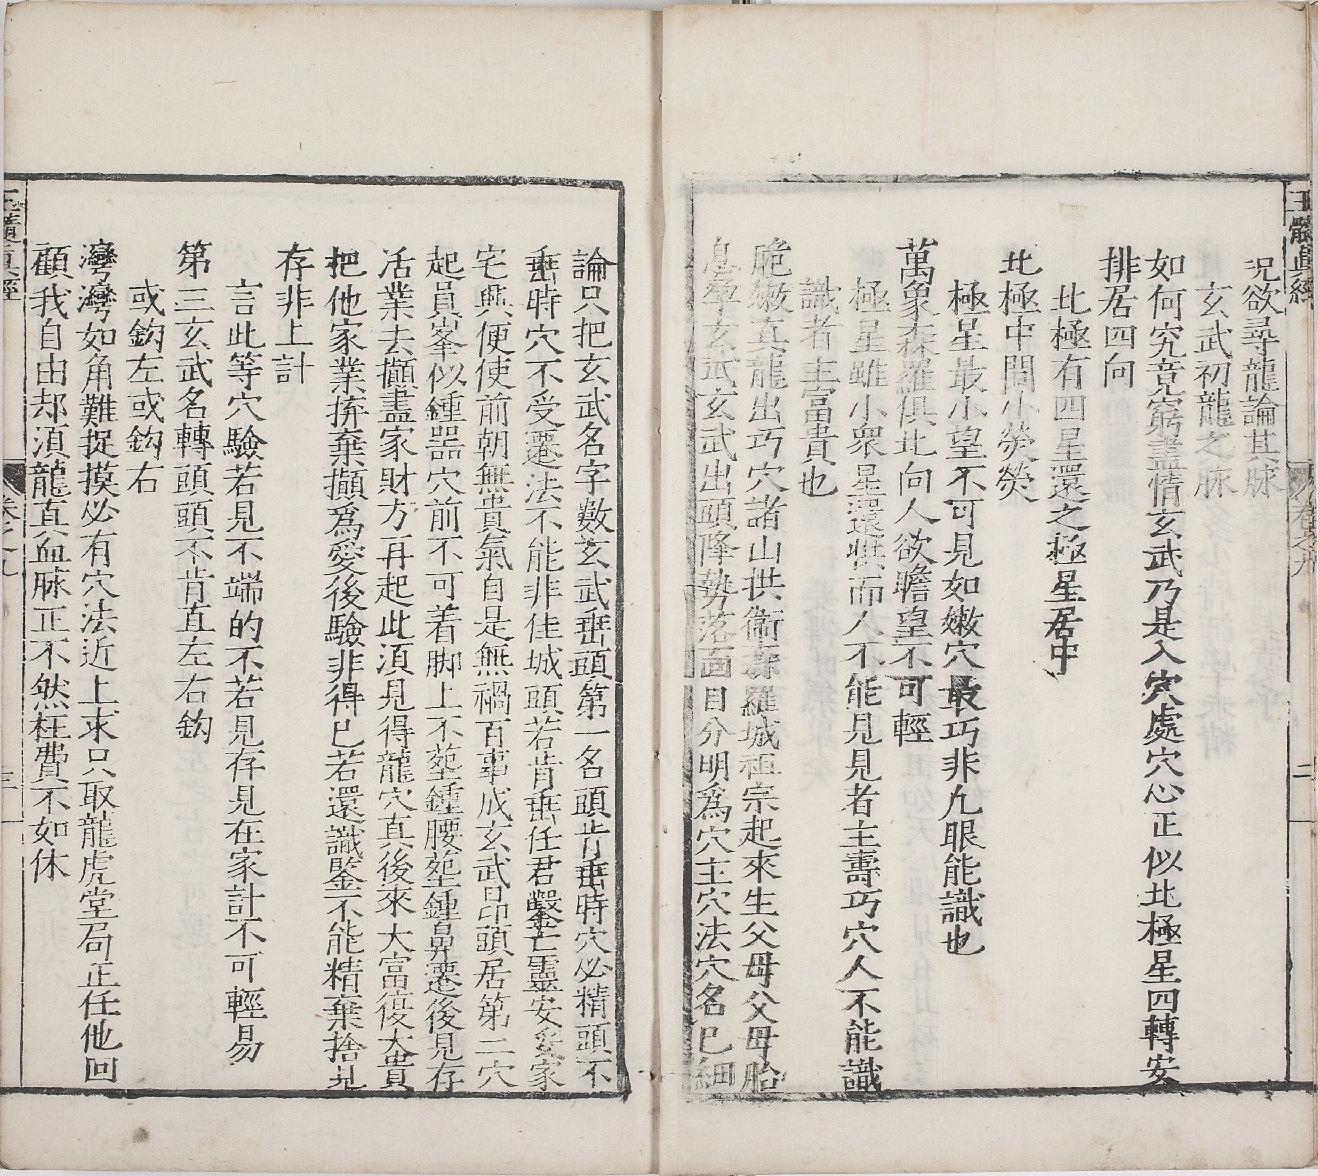 玉髓眞經
卷之九
二
况欲尋龍論其脉
玄武初龍之脉
如何究竟窮盡情玄武乃是入穴處穴心正似北極星四轉安
排居四向
北極有四星還之極星居中
北極中間小熒熒
極星最小望不可見如嫩穴最巧非凡眼能識也
萬象森羅俱北向人欲瞻望不可輕
極星雖小衆星還拱而人不能見見者主壽巧穴人不能識
識者主富貴也
脆嫩真龍出巧穴諸山拱衛森羅城祖宗起來生父母父母胎
息孕玄武玄武出頭降勢落面目分明爲穴主穴法穴名已細
論只把玄武名字數玄武垂頭第一名頭肯垂時穴必精頭不
垂時穴不受遷法不能非佳城頭若肯垂任君鑿亡靈安妥家
宅興便使前朝無貴氣自是無禍百事成玄武印頭居第二穴
起員峯似鍾器穴前不可着脚上不塟鍾腰塟鍾鼻遷後見存
活業去攧盡家財方再起此須見得龍穴真後來大富復大貴
把他家業擠棄攧爲愛後驗非得已若還識鑒不能精棄捨見
存非上計
言此等穴驗若見不端的不若見存見在家計不可輕易
第三玄武名轉頭頭不肯直左右鈎
或鈎左或鈎右
灣灣如角難捉摸必有穴法近上求只取龍虎堂局正任他回
顧我自由却須龍真血脉正不然枉費不如休
玉髓眞經
卷之九
三